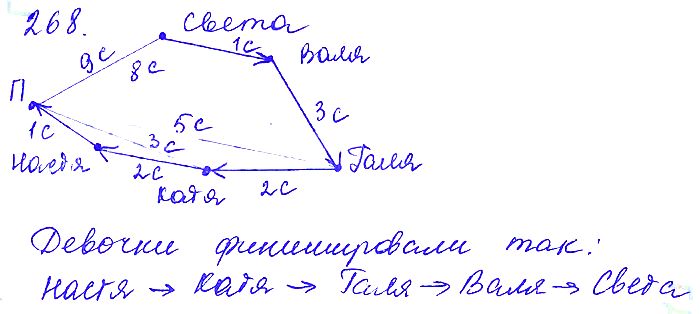 268.
Света
9с
1с
8с
Валя
П
3с
5с
1с
3с
Настя
2с
Катя
2с
Галя
Девочки финишировали так:
Настя → Катя → Галя → Валя → Света